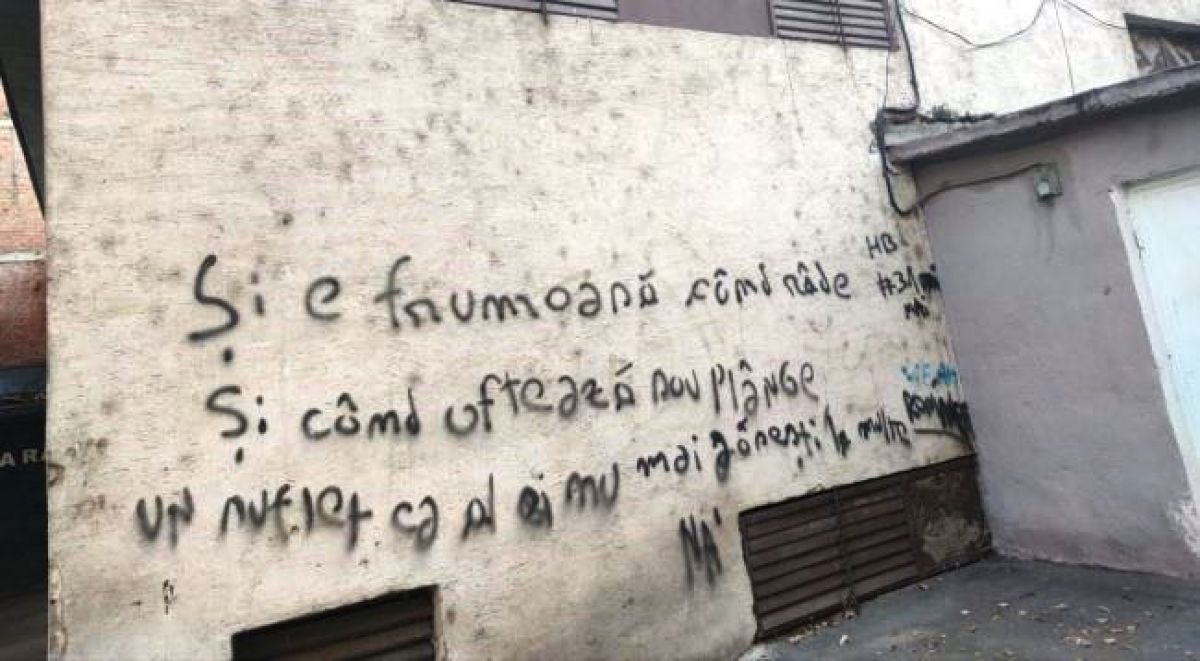 Și e frumoasă când râde
HB
Și când oftează sau plânge
un suflet ca al ei nu mai găsești la multe
NA'